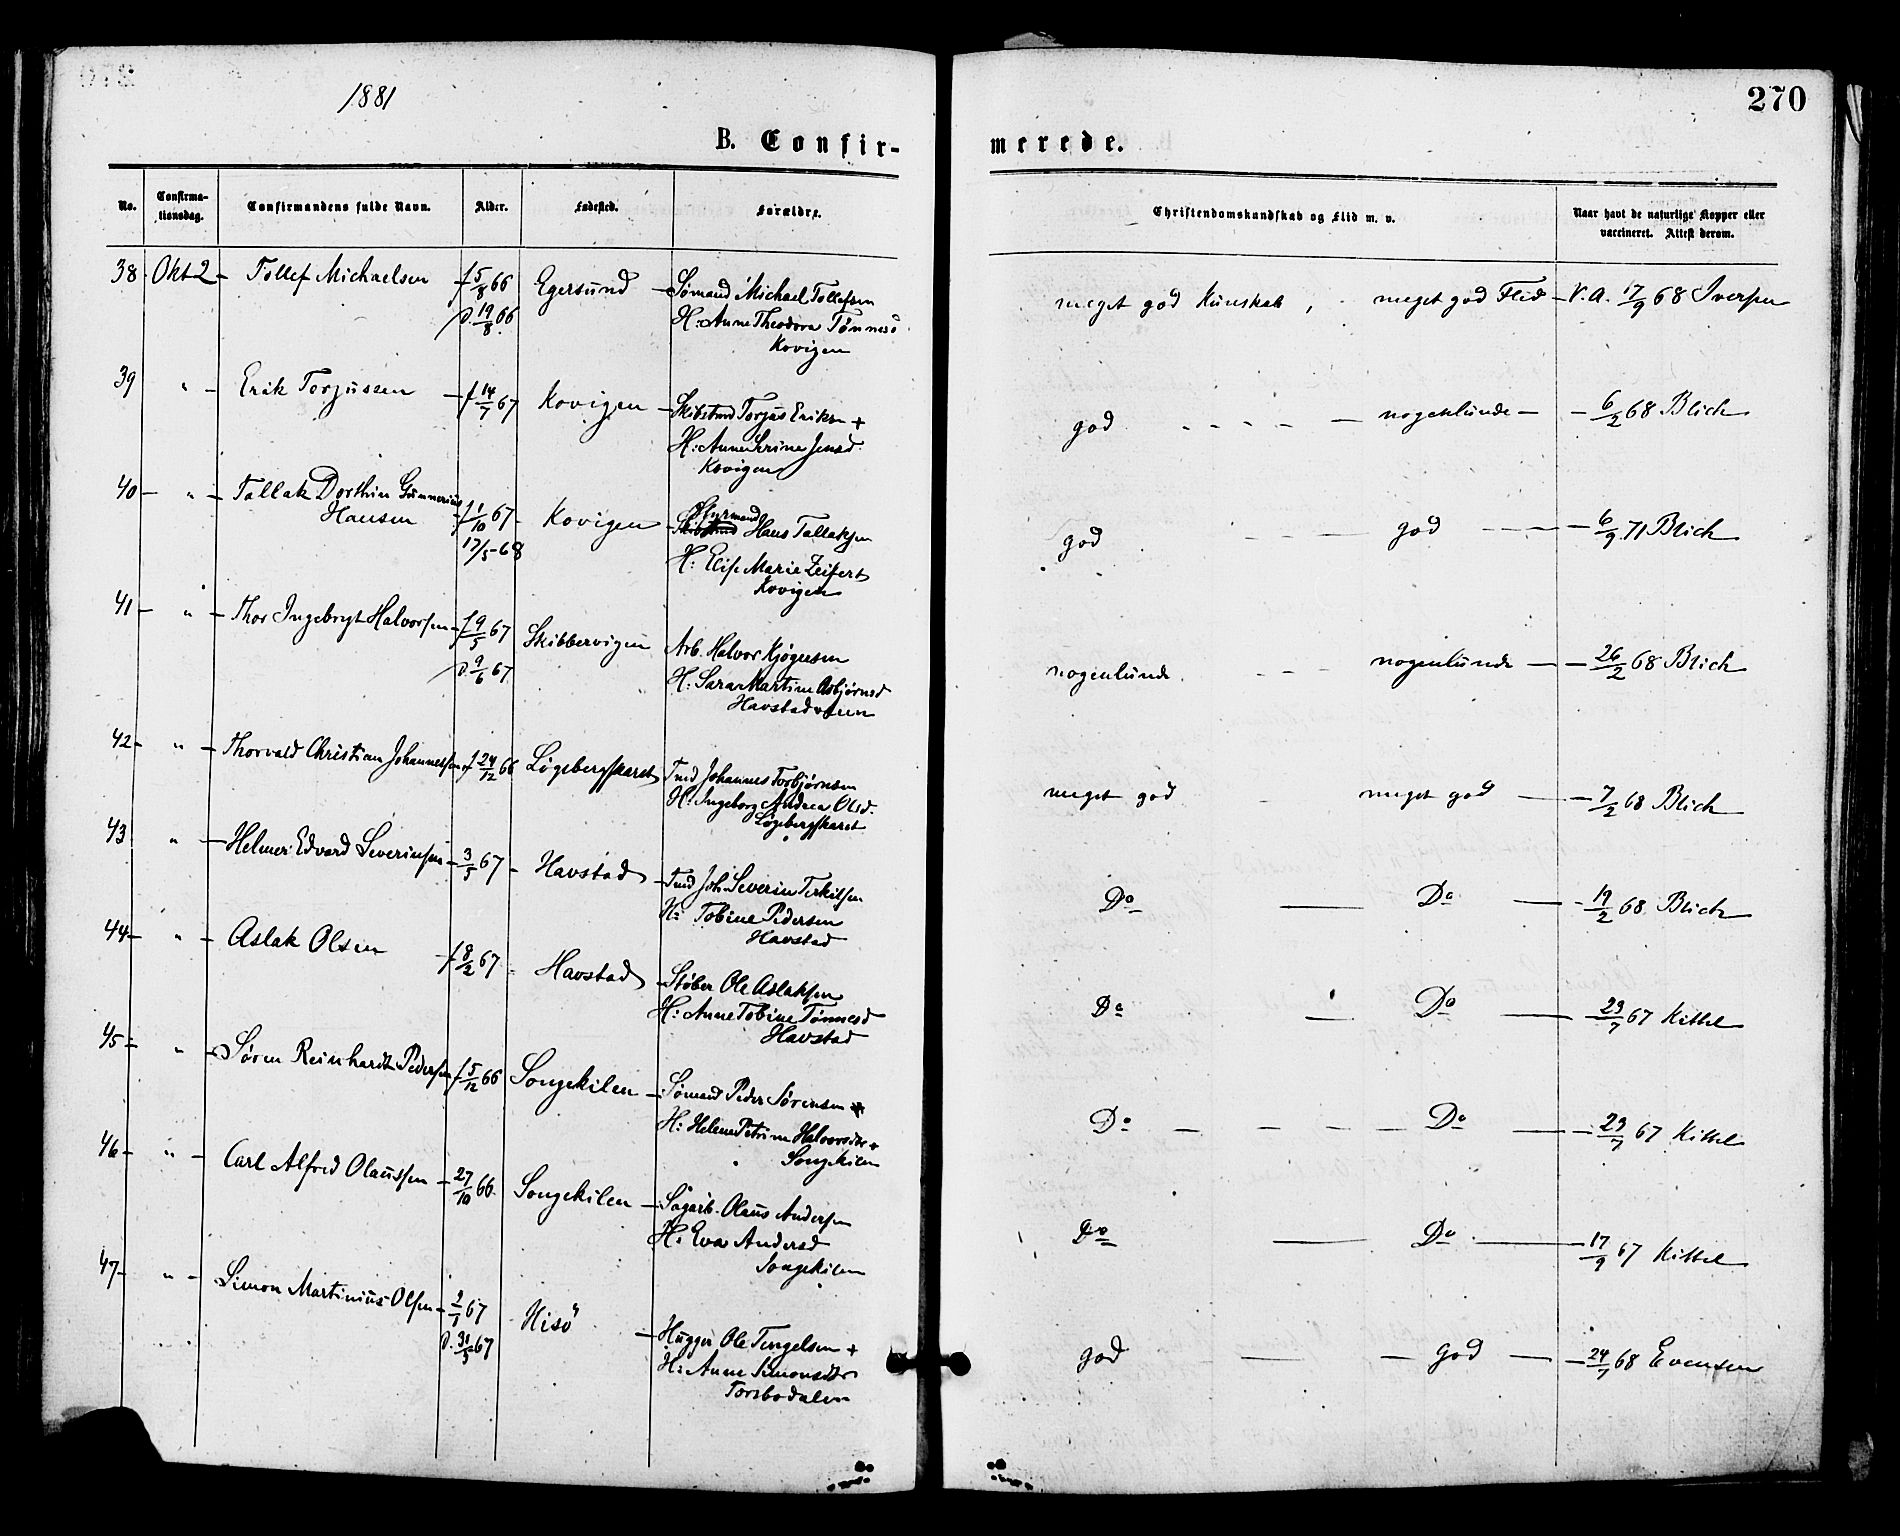 1881
270
B. Confir-
merede.
No.
Confirma-
tionsdag.
Confirmandens fulde Navn.
Alder.
Fødested.
Forældre.
Christendomskundskab og Flid m. v.
Naar havt de naturlige Kopper eller
vaccineret. Attest derom.
38 Okt 2 - Tollef Michaelsen f 5/8 66 Egersund - Sømand Michael Tollefsen meget god Kunskab, meget god Flid - V. A. 17/9 68 Iversen
d. 19/8 66 H: Anne Theodora Tønnesd
Kovigen
39 " - Erik Torjussen - f 14/7 67 Kovigen - Skibstmd Torjus Eriksen + god - - - - nogenlunde - - 6/2 68 Blich
H: Anne Serine Jensd.
Kovigen
40 - " - Tallak Dorthin Gunnerius
Hansen f 1/10 67 - Kovigen - Styrmand Hans Tallaksen god - - - god - - - 6/9 71 Blich
17/5 - 68 H: Elise Marie Zeifert
Kovigen
41 - " - Thor Ingebrygt Halvorsen - f 9/5 67 Skibbervigen Arb. Halvor Kjøgersen nogenlunde - - nogenlunde - - 26/2 68 Blich
d. 9/6 67. H: Sara Martine Asbjørnsd
Havstadveien
42 - " - Thorvald Christian Johannessen f 24/12 66 Løgebergskaret Tmd Johannes Torbjørnsen meget god - meget god - - 7/2 68 Blich
H: Ingeborg Andrea Olsd.
Løgebergskaret
43 " - Helmer Edvard Severinsen - 3/5 67 - Havstad - Tmd Joh. Severin Terkilsen Do - Do - - 19/2 68 Blich
H: Tobine Pedersen
Havstad
44 - " - Aslak Olsen - f 8/2 67 - Havstad - Støber Ole Aslaksen Do - Do - 23/7 67 Kittel
H: Anne Tobine Tønnesd
Havstad
45 - " - Søren Reinhardt Pedersen f 5/12 66 Songekilen - Sømand Peder Sørensen Do - - - - Do - 23/7 67 Kittel
H: Helene Petrine Halvorsdtr +
Songekilen
46 - " - Carl Alfred Olaussen - 27/10 66. Songekilen - Sagarb. Olaus Andersen Do - Do - 17/9 67 Kittel
H: Eva Andersd
Songekilen
47 - " - Simon Martinius Olsen - 2/1 67 Hisö - Hugger Ole Tengelsen + god - - god - - 24/7 68 Evensen
d. 31/3 67 H: Anne Simonsdtr
Torsbodalen